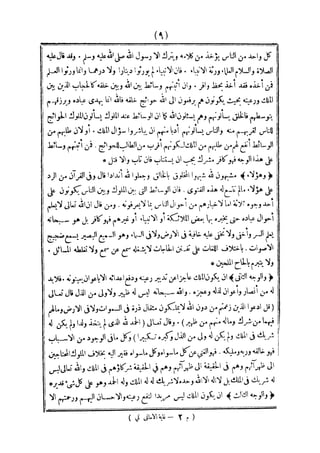 (٩)
كل واحد من الناس يؤخذ من كلامه ويترك الا رسول الله صلى الله عليه وسلم . وقد قال عليه
الصلاة والسلام العلماء ورثة الانبياء . فان الانبياء لم يورثوا دينارا ولا درهما وانما ورثوا العلم
فمن أخذه فقد أخذ بحظ وافر . وان أثبتهم وسائط بين الله وبين خلقه كالحجاب الذين بين
الملك ورعيته بحيث يكونون هم يرفعون الى الله حوائج خلقه فالله انما يهدى عباده ويرزقهم
بتوسطهم فالخلق يسألونهم وهم يسألون الله كما ان الوسائط عند الملوك يسألون الملوك الحوائج
للناس لقربهم منه والناس يسألونهم أدبا منهم ان يباشروا سؤال الملك . أو لان طلبهم من
الوسائط أنفع لهم من طلبهم من الملك لكونهم أقرب من الطالب للحوائج . فمن أثبتهم وسائط
على هذا الوجه فهو كافر مشرك يجب ان يستتاب فان تاب والا قتل *
﴿ وهؤلاء ﴾ مشبهون لله شبهوا المخلوق بالخالق وجعلوا لله أندادا قال وفى القرآن من الرد
على هؤلاء . مالم تتسع له هذه الفتوى . فان الوسائط التى بين الملوك وبين الناس يكونون على
أحد وجوه ثلاثة اما لاخبارهم من أحوال الناس بما لا يعرفونه . ومن قال ان الله تعالى لا يعلم
أحوال عباده حتى يخبره بها بعض الملائكة أو الانبياء . أو غيرهم فهو كافر بل هو سبحانه
يعلم السر وأخفى ولا تخفى عليه خافية فى الارض ولا فى السماء وهو السميع البصير يسمع ضجيج
الاصوات . باختلاف اللغات على تفنن الحاجات لا يشغله سمع عن سمع ولا تغلطه المسائل .
ولا يتبرم بالحاح الملحين *
﴿ والوجه الثانى ﴾ ان يكون الملك عاجزا عن تدبير رعيته ودفع اعدائه الا باعوان يعينونه . فلابد
له من أنصار وأعوان لذله وعجزه . والله سبحانه ليس له ظهير ولا ولى من الذل قال تعالى
(قل ادعوا الذين زعمتم من دون الله لا يملكون مثقال ذرة فى السموات ولا فى الارض وما لهم
فيهما من شرك وماله منهم من ظهير) . وقال تعالى (الحمد لله الذى لم يتخذ ولدا ولم يكن له
شريك فى الملك ولم يكن له ولى من الذل وكبره تكبيرا) وكل مافى الوجود من الاسباب
فهو خالقه وربه ومليكه . فهو الغنى عن كل ماسواه وكل ماسواه فقير اليه بخلاف الملوك المحتاجين
الى ظهرائهم وهم فى الحقيقة الى ظهرائهم وهم فى الحقيقة شركاؤهم فى الملك والله تعالى ليس
له شريك فى الملك بل لا اله الا الله وحده لا شريك له له الملك وله الحمد وهو على كل شئ قدير*
﴿ والوجه الثالث ﴾ ان يكون الملك ليس مريدا لنفع رعيته والاحسان اليهم ورحمتهم الا
( م ٢ — غاية الامانى نى )